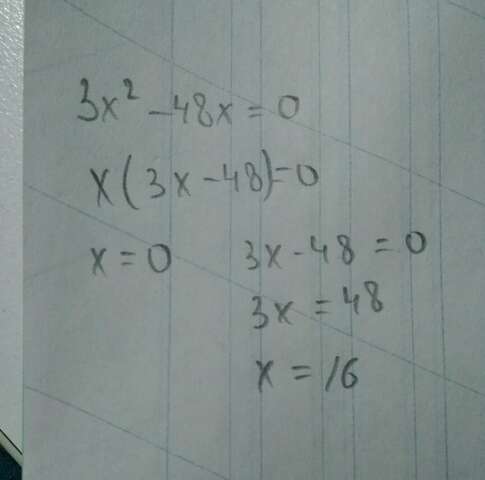 3x² - 48x = 0
x(3x - 48) = 0
x = 0    3x - 48 = 0
3x = 48
x = 16